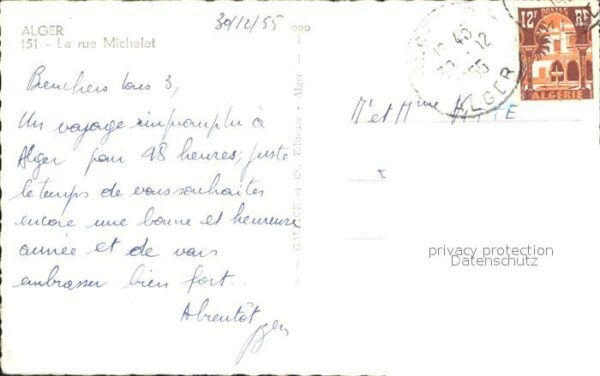 ALGER
151 - La rue Michelet
30/12/55
Bien chers tous 3,
Un voyage impromptu à
Alger pour 48 heures; juste
le temps de vous souhaiter
encore une bonne et heureuse
année et de vous
embrasser bien fort.
A bientôt
Editeurs - Alger
Mr et Mme
12F POSTES RF
ALGERIE
45
12
55
ALGER
privacy protection
Datenschutz